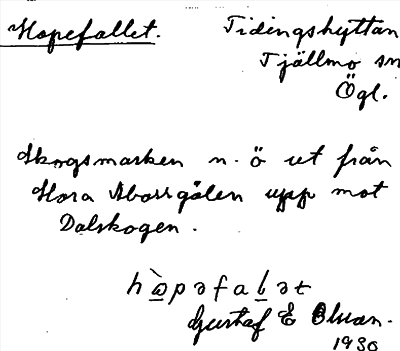 Hopefallet.
Tidingshyttan
Tjällmo sn
Ögl.
Skogsmarken n. ö ut från
Stora Aborrgölen upp mot
Dalskogen.
hɷ̀pəfalət
Gustaf E Olsson.
1930